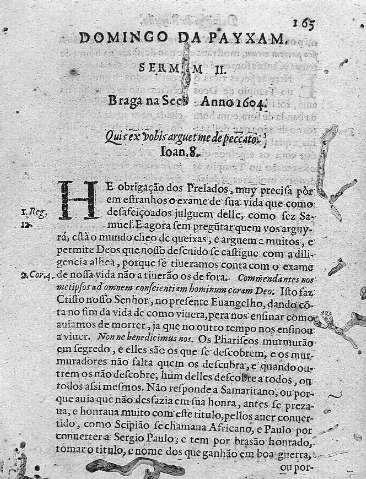 165
DOMINGO DA PAYXAM.
SERMAM II.
Braga na See Anno 1604.
Quis ex vobis arguet me de peccato?
Ioan.8.
HE obrigação dos Prelados, muy precisa pòr
em estranhos o exame de sua vida que como
1. Reg. desafeiçoados julguem delle, como fez Sa-
12. muel. E agora sem pregũtar quem vos argny-
rá, està o mundo cheo de queixas, e arguem a muitos, e
permite Deos que nosso descuido se castigue com a dili-
gencia alhea, porque se tiueramos conta com o exame
2. Cor. 4. de nossa vida não a tiuerão os de fora. Commendantes nos
metipsos ad omnem conscientiam hominum coram Deo. Isto faz
Cristo nosso Senhor, no presente Euangelho, dando cõ-
ta no fim da vida de como viuera, pera nos ensinar como
auiamos de morrer, ja que no outro tempo nos ensinou
a viuer. Non ne benedicimus nos. Os Phariseos murmurão
em segredo, e elles são os que se descobrem, e os mur-
muradores não falta quem os descubra, e quando ou-
trem os não descobre, hum delles descobre a todos, ou
todos assi mesmos. Não responde a Samaritano, ou por-
que auia que não desfazia em sua honra, antes se preza-
ua, e honraua muito com este titulo, pellos auer conuer-
tido, como Scipião se chamaua Africano, e Paulo por
conuerter a Sergio Paulo; e tem por brasão honrado,
tomar o titulo, e nome dos que ganhão em boa guerra,
ou por-